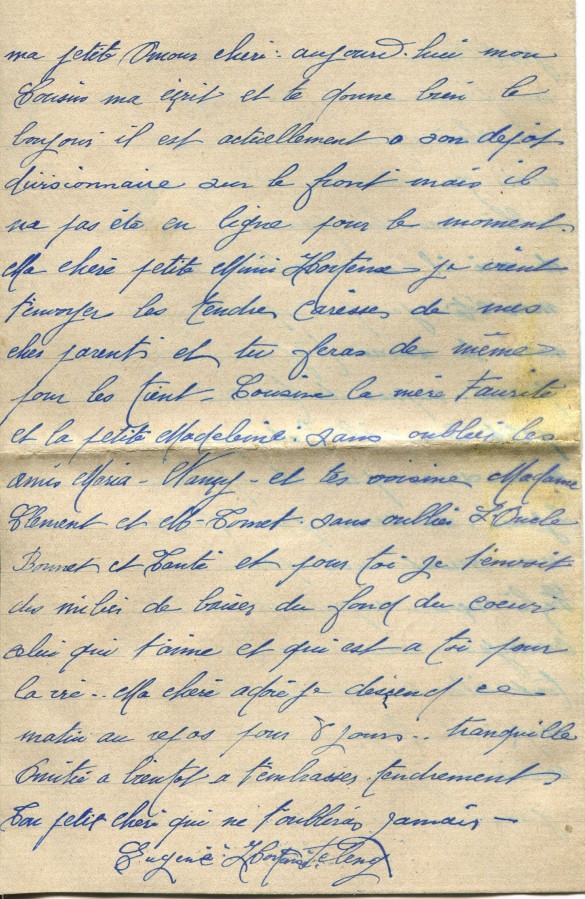 ma petite Amour cheri. aujourd.hui mon
Cousin ma écrit et te donne bien le
bonjour il est actuellement a son depot
divisionnaire sur le front mais il
na pas été en ligne pour le moment
Ma chère petite Mimi Hortense je vient
t'envoyer les tendres caresses de mes
cher parents et tu feras de même
pour les tient - Cousine la mère Faurite
et la petite Madeleine. sans oublier les
amis Maria - Nancy - et tes voisine Madame
Clement et M- Comet. sans oublier L'Oncle
Bonnet et Tante et pour toi je t'envoit
des milier de baiser du fond du coeur
celui qui t'aime et qui est a toi pour
la vie.. Ma chère adoré je dessend ce
matin au repos pour 8 jours.. tranquille
Amitié a bientot a t'embrasser tendrement
Ton petit cheri qui ne t'oublieras jamais -
Eugène Hortense